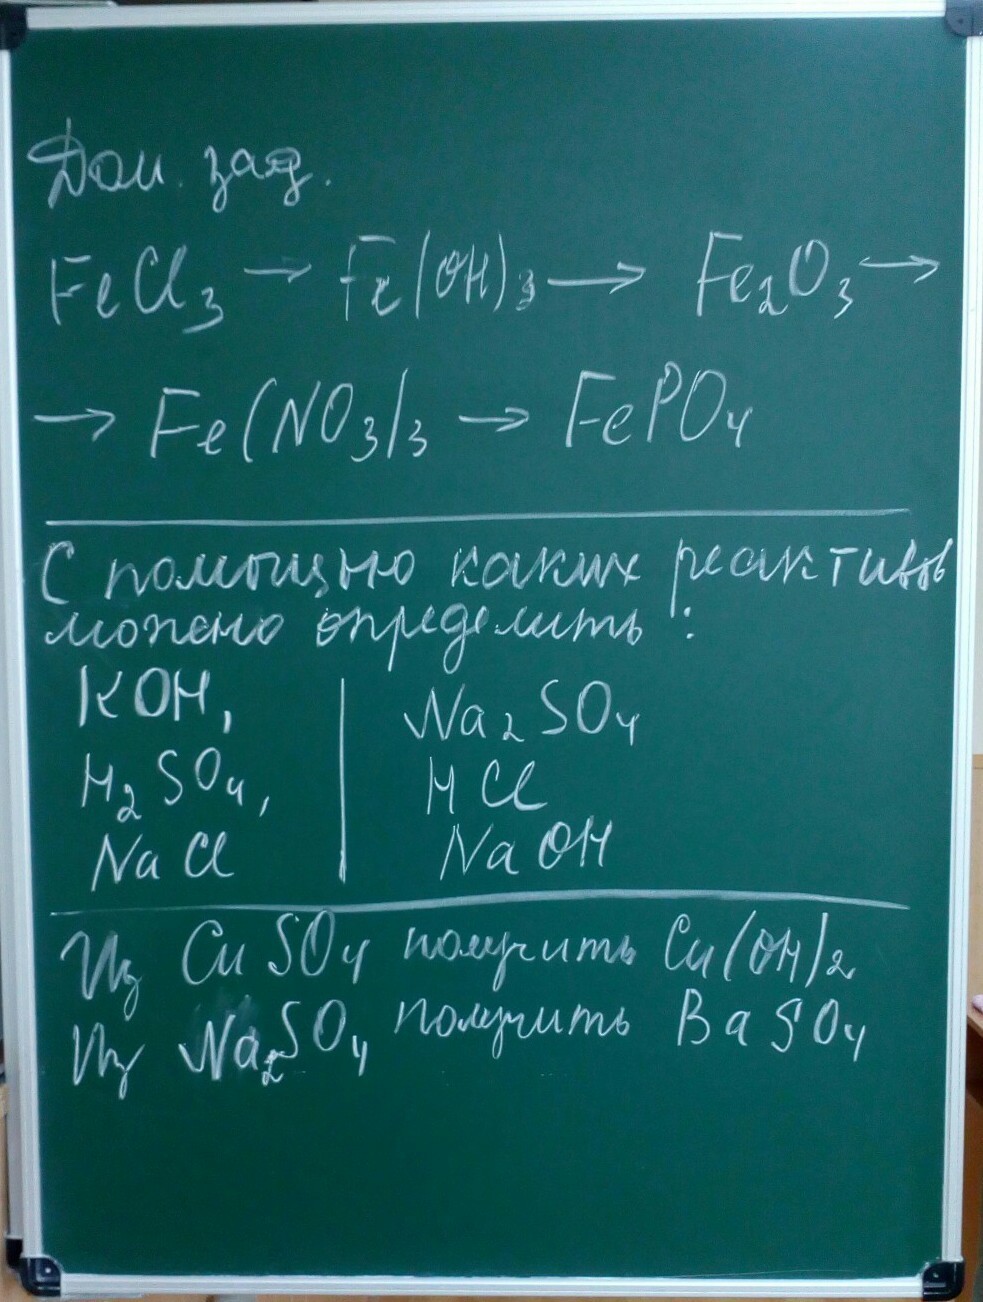 Дом. зад.
FeCl₃ → Fe(OH)₃ → Fe₂O₃ →
→ Fe(NO₃)₃ → FePO₄
С помощью каких реактивов
можно определить:
KOH, | Na₂SO₄
H₂SO₄, | HCl
NaCl | NaOH
Из CuSO₄ получить Cu(OH)₂
Из Na₂SO₄ получить BaSO₄